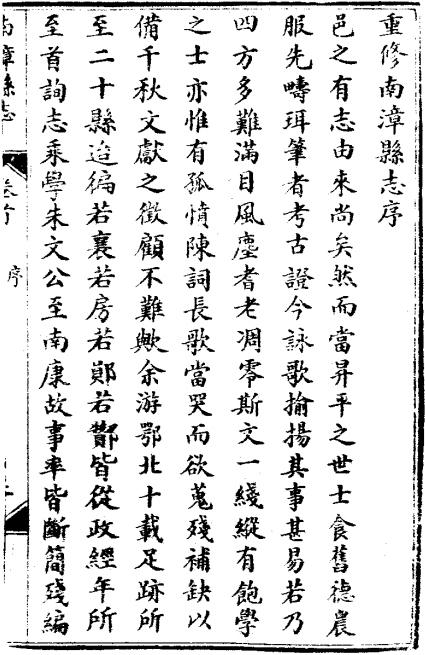 重修南漳縣志序
邑之有志由來尚矣然而當昇平之世士食舊德農
服先疇珥筆者考古證今詠歌揄揚其事甚易若乃
四方多難滿目風塵耆老凋零斯文一綫縱有飽學
之士亦惟有孤憤陳詞長歌當哭而欲蒐殘補缺以
備千秋文獻之徵顧不難歟余游鄂北十載足跡所
至二十縣迨徧若襄若房若鄖若酇皆從政經年所
至首詢志乘學朱文公至南康故事率皆斷簡殘編
南漳縣志
卷首
序